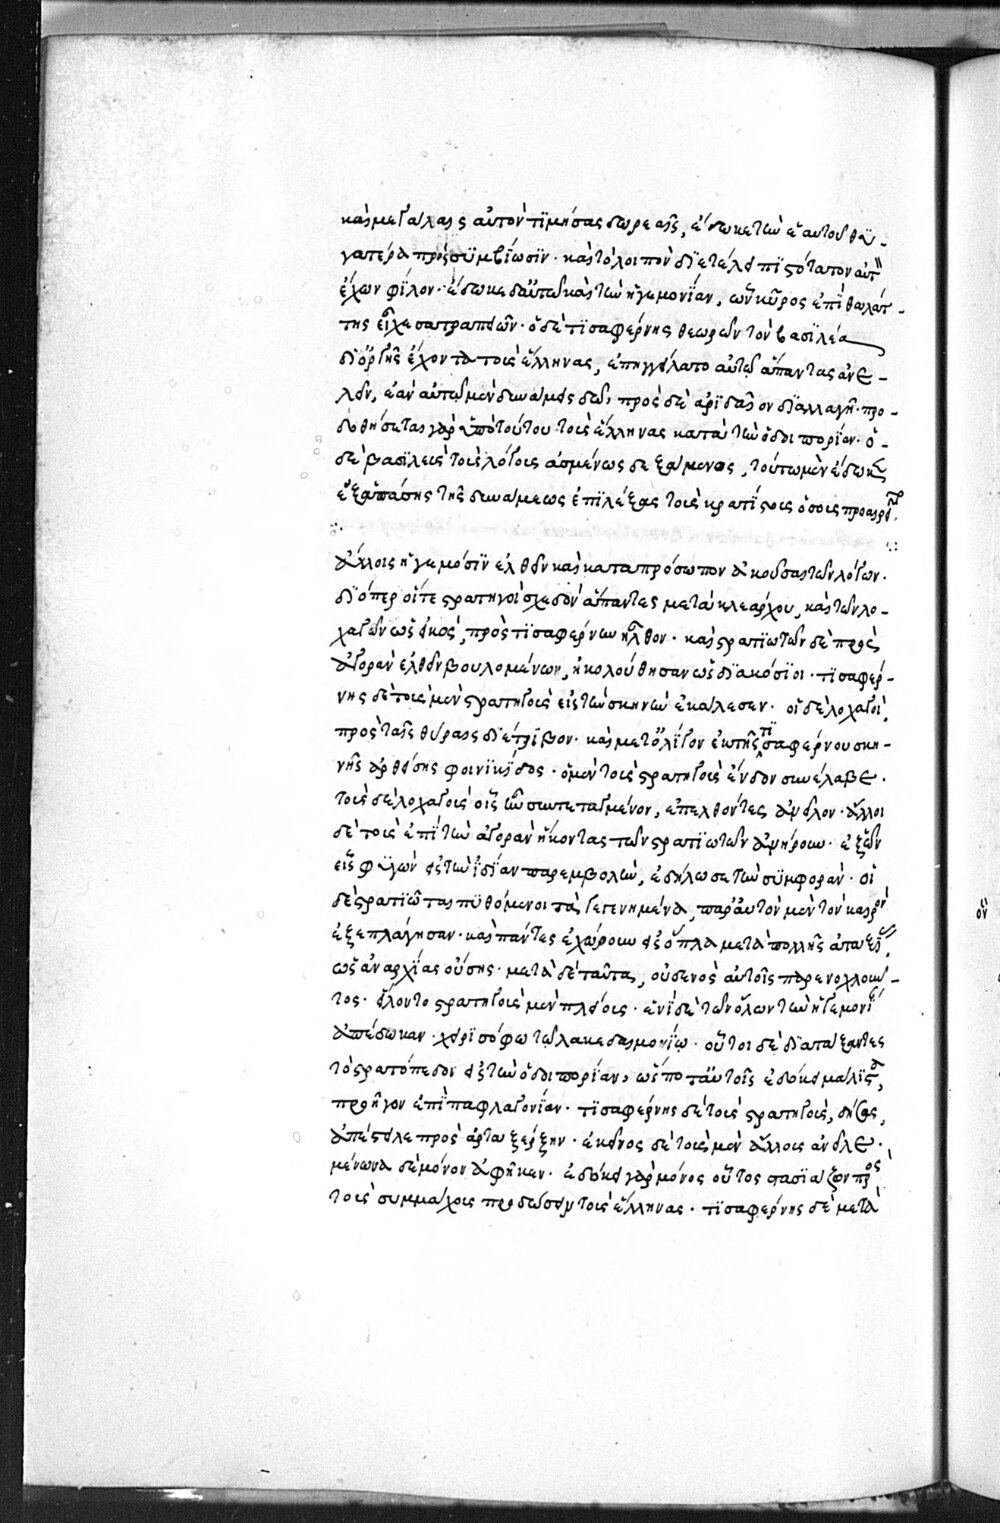 καὶ μεγάλαις αὐτὸν τϊμήσας δωρεαῖς, ἔδωκε τὴν ἑαυτοῦ θϋ-
γατέρα πρὸς σϋμβίωσϊν· καὶ τὸ λοιπὸν δϊετέλει πϊστότατον αὐτὸν
ἔχων φίλον· ἔδωκε δ' αὐτῷ καὶ τὴν ἡγεμονΐαν, ὧν κῦρος ἐπὶ θαλάτ-
της εἶχε σατραπειῶν· ὁ δὲ τϊσαφέρνης θεωρῶν τὸν βασϊλέα
δϊ' ὀργῆς ἔχοντα τοὺς ἕλληνας, ἐπηγγείλατο αὐτῷ ἅπαντας ἀνε-
λεῖν, ἐὰν αὐτῷ μὲν δυνάμεις δῷ, πρὸς δὲ ἀρϊδαῖον δϊαλλαγῆ· προ-
δοθήσεται γὰρ ὑπὸ τούτου τοὺς ἕλληνας κατὰ τὴν ὁδοιπορΐαν· ὁ
δὲ βασϊλεὺς τοὺς λόγους ἀσμένως δεξάμενος, τούτω μὲν ἔδωκεν
ἐξ ἁπάσης τῆς δυνάμεως ἐπϊλέξαι τοὺς κρατΐστους ὅσους προαιρεῖται.
ἄλλοις ἡγεμόσϊν ἐλθεῖν καὶ κατὰ πρόσωπον ἀκοῦσαι τῶν λόγων·
δϊόπερ οἵ τε στρατηγοὶ σχεδὸν ἅπαντες μετὰ κλεάρχου, καὶ τῶν λο-
χαγῶν ὡς εἴκοσι, πρὸς τϊσαφέρνην ἦλθον· καὶ στρατϊωτῶν δὲ πρὸς
ἀγορὰν ἐλθεῖν βουλομένων, ἠκολούθησαν ὡς δϊακόσϊοι· τϊσαφέρ-
νης δὲ τοὺς μὲν στρατηγοὺς εἰς τὴν σκηνὴν ἐκάλεσεν· οἱ δὲ λοχαγοὶ,
πρὸς ταῖς θύραις δϊέτριβον· καὶ μετ' ὀλίγον ἐκ τῆς τϊσαφέρνου σκη-
νῆς ἀρθείσης φοινϊκΐδος· ὁ μὲν τοὺς στρατηγοὺς ἔνδον συνέλαβε·
τοὺς δὲ λοχαγοὺς οἷς ἦν συντεταγμένον, ἐπελθόντες ἀνεῖλον· ἄλλοι
δὲ τοὺς ἐπὶ τὴν ἀγορὰν ἥκοντας τῶν στρατϊωτῶν ἀνήρουν· ἐξ ὧν
εἷς φϋγὼν εἰς τὴν ἰδΐαν παρεμβολὴν, ἐδήλωσε τὴν σϋμφοράν· οἱ
δὲ στρατϊῶται πϋθόμενοι τὰ γεγενημένα, παρ' αὐτὸν μὲν τὸν καιρὸν
ἐξεπλάγησαν· καὶ πάντες ἐχώρουν εἰς ὅπλα μετὰ πολλῆς ἀταξίας,
ὡς ἀναρχίας οὔσης· μετὰ δὲ ταῦτα, οὐδενὸς αὐτοῖς παρενοχλοῦν-
τος· εἵλοντο στρατηγοὺς μὲν πλείους· ἑνὶ δὲ τῶν ὅλων τὴν ἡγεμονίαν
ἀπέδωκαν· χειρϊσόφω τῷ λακεδαιμονΐῳ· οὗτοι δὲ δϊατάξαντες
τὸ στρατόπεδον εἰς τὴν ὁδοιπορΐαν, ὡς ποτ' αὐτοῖς ἐδόκει μάλϊστα,
προῆγον ἐπὶ παφλαγονΐαν· τϊσαφέρνης δὲ τοὺς στρατηγοὺς, δήσας,
ἀπέστειλε πρὸς ἀρταξέρξην· ἐκεῖνος δὲ τοὺς μὲν ἄλλους ἀνεῖλε·
μένωνα δὲ μόνον ἀφῆκεν· ἐδόκει γὰρ μόνος οὗτος στασϊάζων πρὸς
τοὺς συμμάχους προδώσειν τοὺς ἕλληνας· τϊσαφέρνης δὲ μετὰ